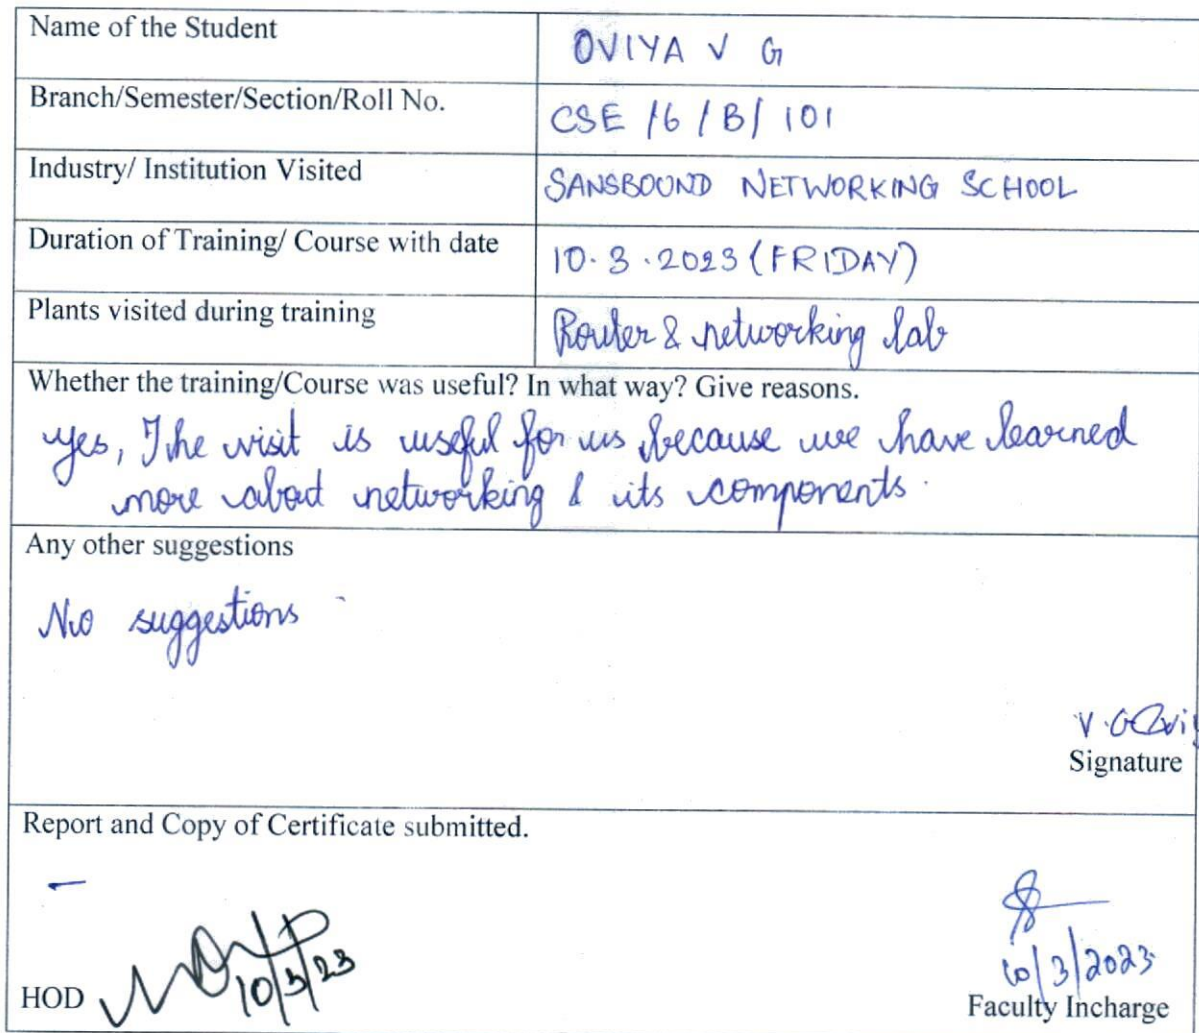 Name of the Student OVIYA V G
Branch/Semester/Section/Roll No. CSE /6 /B/ 101
Industry/ Institution Visited SANSBOUND NETWORKING SCHOOL
Duration of Training/ Course with date 10.3.2023 (FRIDAY)
Plants visited during training Router & networking lab
Whether the training/Course was useful? In what way? Give reasons.
yes, The visit is useful for us because we have learned
more about networking & its components.
Any other suggestions
No suggestions
V.G
Signature
Report and Copy of Certificate submitted.
-
10/3/23
10/3/2023
HOD
Faculty Incharge